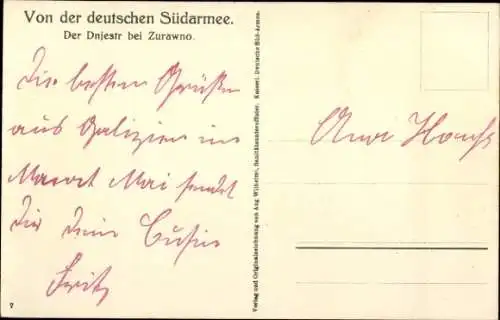 Von der deutschen Südarmee.
Der Dnjestr bei Zurawno.
Die besten Grüße
aus Galizien im
Monat Mai sendet
Dir Dein Cusin
Fritz
7
Verlag und Originalzeichnung von Aug Wilhelmi, Sanitätsunteroffizier. Kaiserl. Deutsche Süd-Armee.